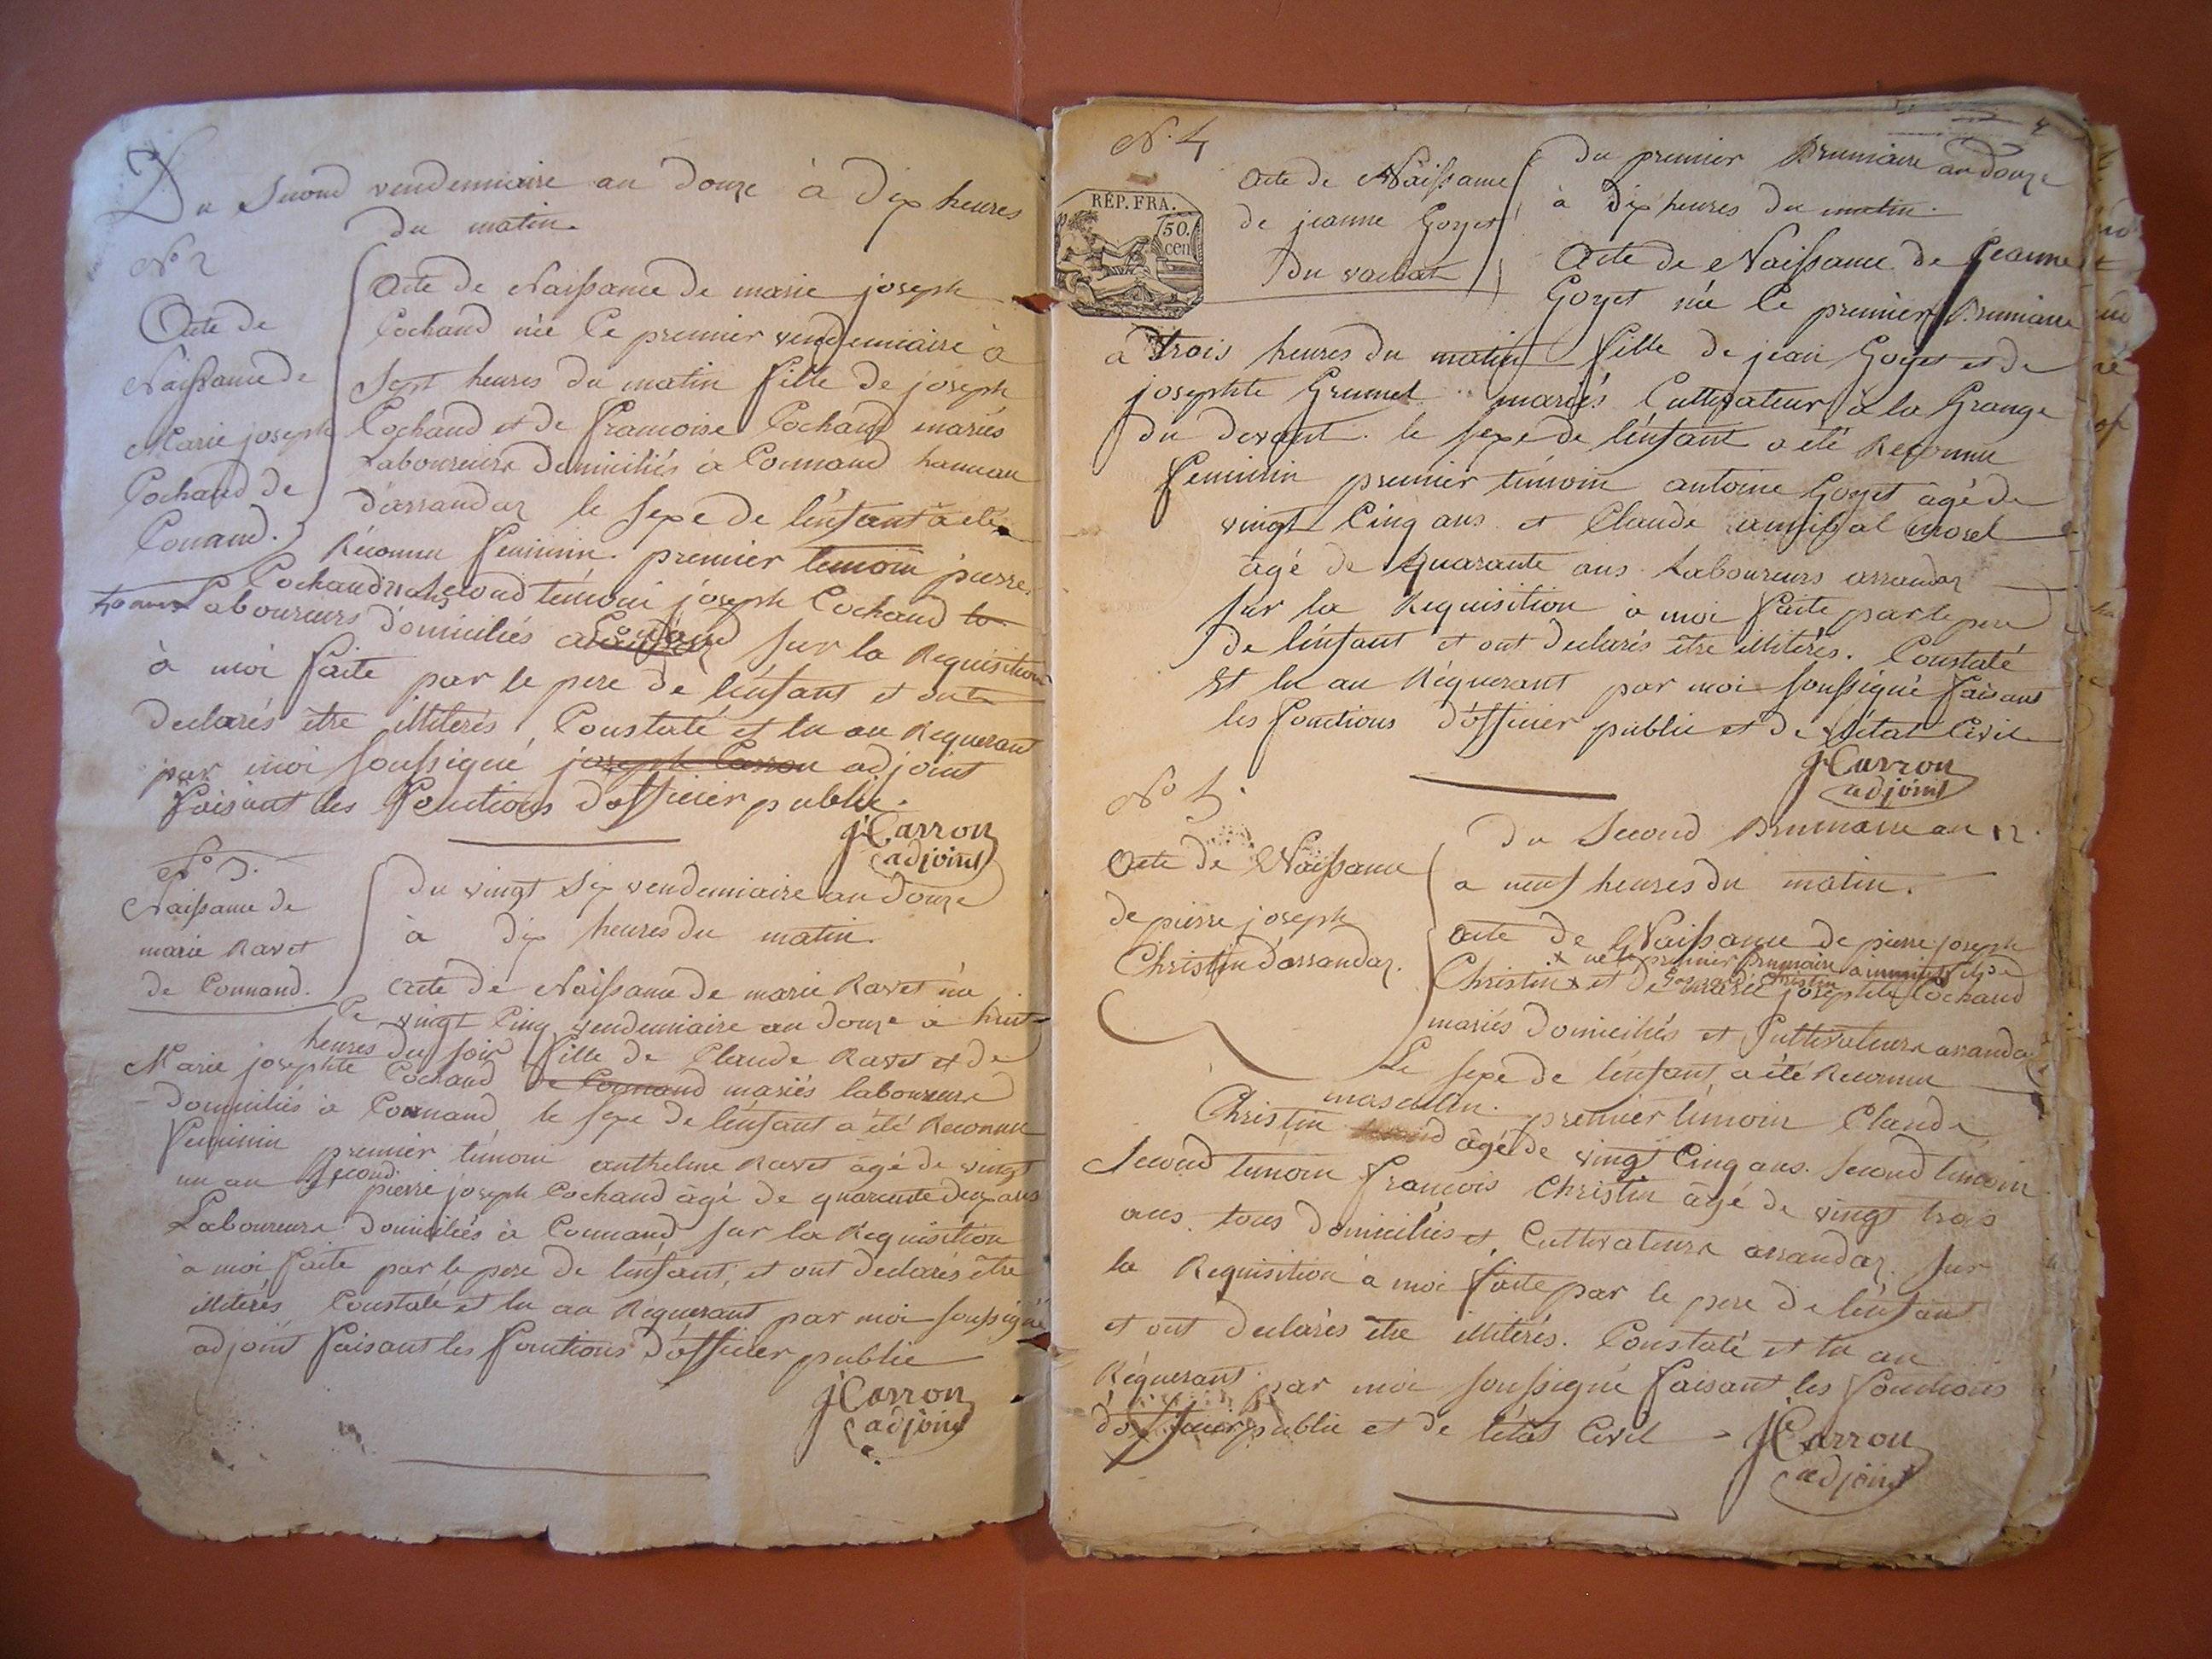 Du Second vendemiaire an douze à dix heures
du matin.
No 2
Acte de
Naissance de
Marie joseph
Cochand de
Conand.
Acte de Naissance de marie joseph
Cochand née le premier vendemiaire à
Sept heures du matin fille de joseph
Cochand et de francoise Cochand mariés
Laboureurs domiciliés à Connand hameau
d'arrandaz le sexe de l'enfant a été
Réconnu feminin. premier temoin pierre
Cochand second témoin joseph Cochand
Laboureurs domiciliés a Conand sur la Requisition
à moi faite par le pere de l'enfant et ont
declarés être illiterés Constaté et lu au Requerant
par moi soussigné joseph Carron adjoint
faisant les fonctions d'officier public.
jCarron
adjoint
No 3.
Naissance de
marie Ravet
de Connand.
Du vingt six vendemiaire an douze
à dix heures du matin.
acte de Naissance de marie Ravet née
le vingt Cinq vendemiaire an douze a huit
heures du soir fille de Claude Ravet et de
Marie josephte Cochand de Connand mariés laboureurs
domiciliés à Connand, le sexe de l'enfant a été Reconnu
feminin premier témoin anthelme Ravet âgé de vingt
un an second pierre joseph Cochand âgé de quarente deux ans
Laboureurs domiciliés à Connand sur la Requisition
à moi faite par le pere de l'enfant, et ont declarés être
illiterés Constaté et lu au Réquerant par moi soussigné
adjoint faisant les fonctions d'officier public
jCarron
adjoint
N. 4
4
RÉP. FRA.
50.
cen
Acte de Naissance
de jeanne Goyet
du vachat
du premier Brumaire an douze
à dix heures du matin.
Acte de Naissance de jeanne
Goyet née le premier Brumaire
à trois heures du matin fille de jean Goyet et de
josephte Grumet mariés Cultivateur à la Grange
du devant. le sexe de l'enfant a été Reconnu
feminin premier témoin antoine Goyet âgé de
vingt Cinq ans et Claude annibal morel
âgé de quarante ans Laboureurs arrandaz
sur la Requisition à moi faite par le pere
de l'enfant et ont declarés être illiterés. Constaté
et lu au Réquerant par moi soussigné faisant
les fonctions d'officier public et de l'état Civil
jCarron
adjoint
No 5.
Acte de Naissance
de pierre joseph
Christin d'arrandaz.
du Second Brumaire an 12.
a neuf heures du matin.
acte de Naissance de pierre joseph
x né le premier Brumaire à minuit fils de
Christin x et de marie josephte Cochand
mariés domiciliés et Cultivateurs arrandaz
Le sexe de l'enfant a été Reconnu
masculin. premier témoin Claude
Christin âgé de vingt Cinq ans. second témoin
Second temoin francois Christin âgé de vingt trois
ans. tous domiciliés et Cultivateurs arrandaz. sur
la Requisition à moi faite par le pere de l'enfant
et ont declarés être illiterés. Constaté et lu au
Réquerant par moi soussigné faisant les fonctions
d'officier public et de l'état Civil
jCarron
adjoint